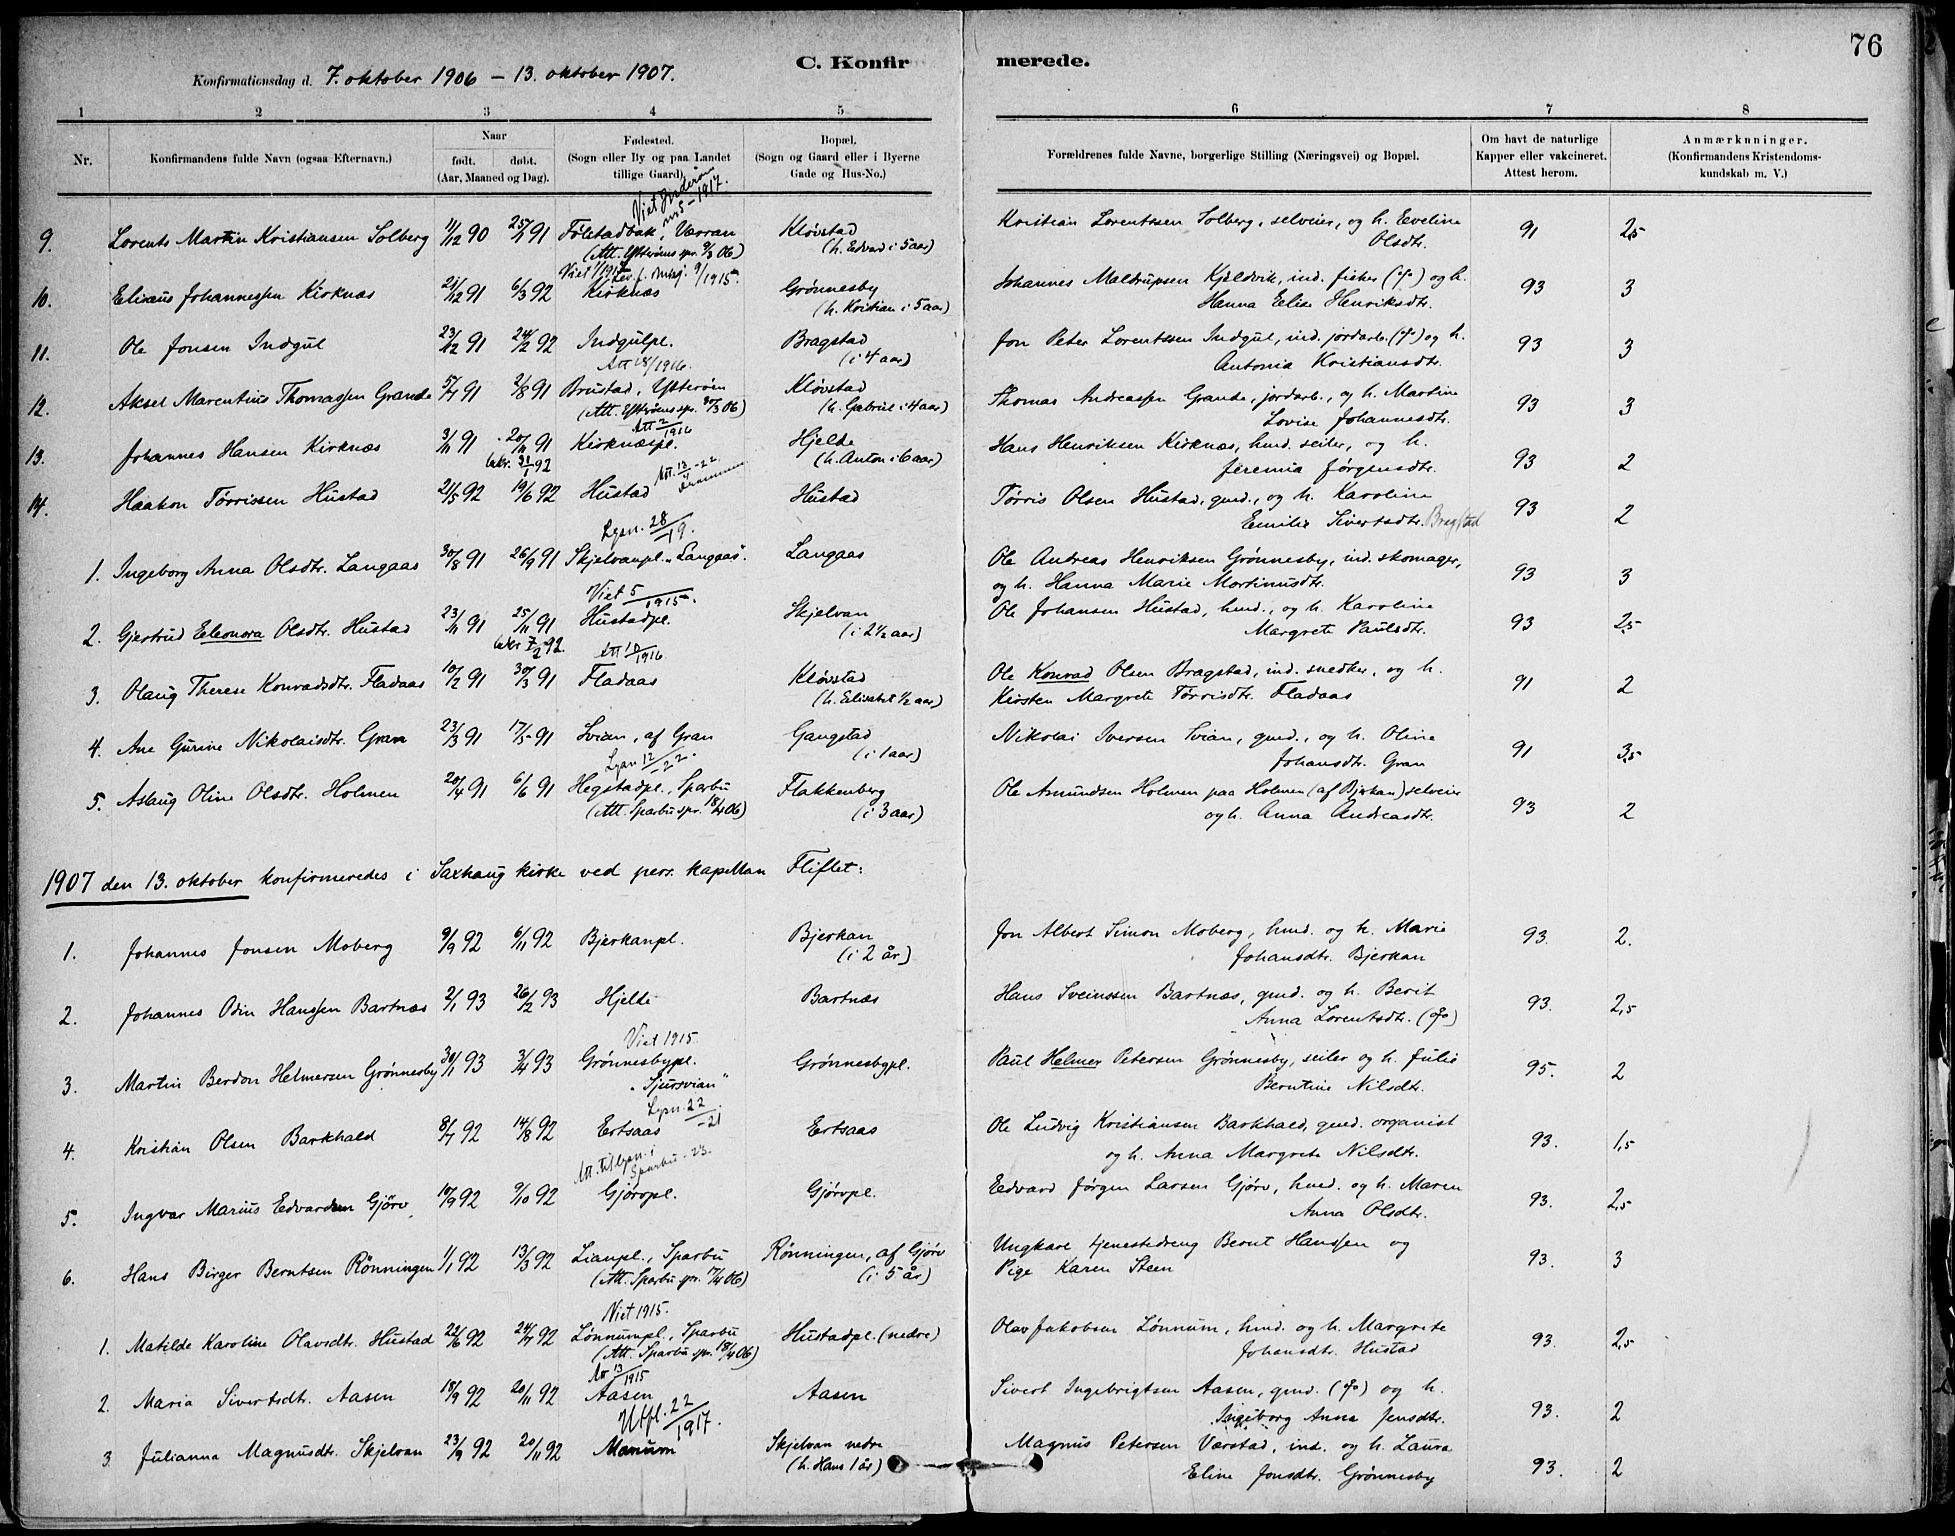 76
C. Konfir merede.
Konfirmationsdag d. 7. oktober 1906 – 13. oktober 1907.
1 2 3 4 5 6 7 8
Nr.
Konfirmandens fulde Navn (ogsaa Efternavn.)
Naar
født. døbt.
(Aar, Maaned og Dag).
Fødested.
(Sogn eller By og paa Landet
tillige Gaard).
Bopæl.
(Sogn og Gaard eller i Byerne
Gade og Hus-No.)
Forældrenes fulde Navne, borgerlige Stilling (Næringsvei) og Bopæl.
Om havt de naturlige
Kapper eller vakcineret.
Attest herom.
Anmærkninger.
(Konfirmandens Kristendoms-
kundskab m. V.)
Viet Inderøen
5 – 1917.
9. Lorents Martin Kristiansen Solberg 11/12 90 25/1 91 Følstadbak, Værran Kløvstad Kristian Lorentssen Solberg, selveier, og h. Eveline 91 2,5
(Att. Ytterøens spr. 9/3 06) (h. Edvard i 5 aar) Olsdtr.
10. Elisæus Johannessen Kirknæs 21/12 91 6/3 92 Kirknæs Grønnesby Johannes Maldrupsen Kjeldvik, ind. fisker (o/o) og h. 93 3
(h. Kristian i 5 aar) Hanna Elise Henriksdtr.
11. Ole Jonsen Indgul 23/12 91 24/2 92 Indgulpl. Bragstad Jon Peter Lorentssen Indgul, ind. jordarb. (o/o) og h. 93 3
Att 18/1916. (i 4 aar) Antonia Kristiansdtr.
12. Aksel Marentius Thomassen Grande 5/7 91 2/8 91 Brustad, Ytterøen Kløvstad Thomas Andreassen Grande, jordarb., og h. Martine 93 3
(Att. Ytterøens spr. 30/3 06) (h. Gabriel i 4 aar) Lovise Johannesdtr.
Att 2/1916
13. Johannes Hansen Kirknæs 3/11 91 20/11 91 Kirknæspl. Hjelde Hans Henriksen Kirknæs, hmd. seiler, og h. 93 2
bekr. 31/1 92 (h. Anton i 6 aar) Jeremia Jørgensdtr.
Att. 13 – 22.
14. Haakon Tørrissen Hustad 21/5 92 19/6 92 Hustad Hustad Tørris Olsen Hustad, gmd., og h. Karoline 93 2
Emilie Sivertsdtr. Bragstad
Lysn. 28/19.
1. Ingeborg Anna Olsdtr. Langaas 30/8 91 26/9 91 Skjelvanpl. „Langaas". Langaas Ole Andreas Henriksen Grønnesby, ind. skomager, 93 3
og h. Hanna Marie Martinusdtr.
Viet 5/1915.
2. Gjertrud Eleonora Olsdtr. Hustad 23/11 91 25/11 91 Hustadpl. Skjelvan Ole Johansen Hustad, hmd., og h. Karoline 93 2,5
bekr 7/2 92. (i 2½ aar) Margrete Paulsdtr.
Att 10/1916.
3. Olaug Therese Konradsdtr. Fladaas 10/2 91 30/3 91 Fladaas Kløvstad Ole Konrad Olsen Bragstad, ind. snedker, og h. 91 2
(h. Elisabet ½ aar) Kirsten Margrete Tørrisdtr. Fladaas
4. Ane Gurine Nikolaisdtr. Gran 23/3 91 17/5 91 Svian, af Gran Gangstad Nikolai Iversen Svian, gmd., og h. Oline 91 3,5
(i 1 aar) Johansdtr. Gran
Lysn 12/–22.
5. Aslaug Oline Olsdtr. Holmen 20/4 91 6/6 91 Hegstadpl., Sparbu Flakkenberg Ole Amundsen Holmen paa Holmen (af Bjerkan) selveier 93 2
(Att. Sparbu spr. 18/4 06) (i 3 aar) og h. Anna Andreasdtr.
1907 den 13. oktober konfirmeredes i Saxhaug kirke ved pers. kapellan Fliflet:
1. Johannes Jonsen Moberg 9/9 92 6/11 92 Bjerkanpl. Bjerkan Jon Albert Simon Moberg, hmd. og h. Marie 93. 2.
(i 2 år) Johansdtr. Bjerkan
2. Johannes Odin Hanssen Bartnæs 2/1 93 26/2 93 Hjelde Bartnæs Hans Sveinssen Bartnæs, gmd. og h. Berit 93. 2,5
Anna Lorentsdtr. (o/o)
Viet 1915.
3. Martin Berdon Helmersen Grønnesby 30/1 93 3/4 93 Grønnesbypl. Grønnesbypl. Paul Helmer Petersen Grønnesby, seiler og h. Julie 95. 2
„Sjursvian" Berntine Nilsdtr.
Lysn. 22/–21
4. Kristian Olsen Barkhald 8/7 92 14/8 92 Ertsaas Ertsaas Ole Ludvig Kristiansen Barkhald, gmd. organist 93. 1,5
og h. Anna Margrete Nilsdtr.
Att. til lysn. i
Sparbu – 23.
5. Ingvar Marius Edvardsen Gjörv 10/9 92 9/10 92 Gjørvpl. Gjørvpl. Edvard Jørgen Larsen Gjørv, hmd. og h. Maren 93. 2,5
Anna Olsdtr.
6. Hans Birger Berntsen Rönningen 1/1 92 13/3 92 Lianpl., Sparbu Rønningen, af Gjørv Ungkarl tjenestedreng Bernt Hanssen og 93. 3
(Att. Sparbu spr. 17/4 06) (i 5 år) Pige Karen Steen
Viet 1915.
1. Matilde Karoline Olavsdtr. Hustad 22/6 92 24/7 92 Lønnumpl., Sparbu Hustadpl. (nedre) Olav Jakobsen Lønnum, hmd. og h. Margrete 93. 2,5
(Att. Sparbu spr. 18/4 06) Johansdtr. Hustad
13/1915
2. Maria Sivertsdtr. Aasen 18/9 92 20/11 92 Aasen Aasen Sivert Ingebrigtsen Aasen, gmd. (o/o) og h. 93. 2
Ingeborg Anna Jensdtr.
Utfl. 22/1917.
3. Julianna Magnusdtr. Skjelvan 23/9 92 20/11 92 Manum Skjelvan nedre Magnus Petersen Værstad, ind. og h. Laura 93. 2
(h. Hans 1 år) Eline Jonsdtr. Grønnesby